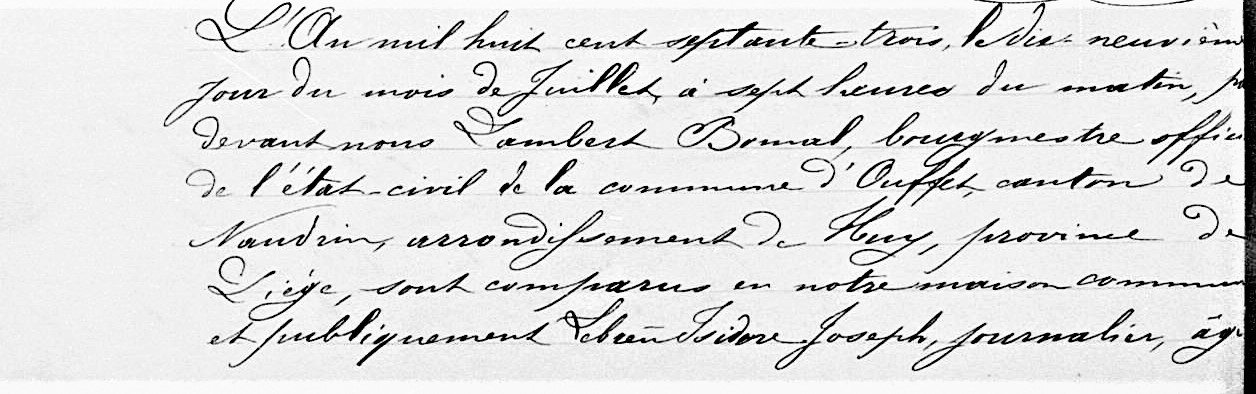 L'An mil huit cent septante-trois, le dix-neuvièm
jour du mois de Juillet, à sept heures du matin, pa
devant nous Lambert Bomal, bourgmestre offici
de l'état-civil de la commune d'Ouffet, canton de
Nandrin, arrondissement de Huy, province de
Liége, sont comparus en notre maison commun
et publiquement Isidore Joseph, journalier, âg